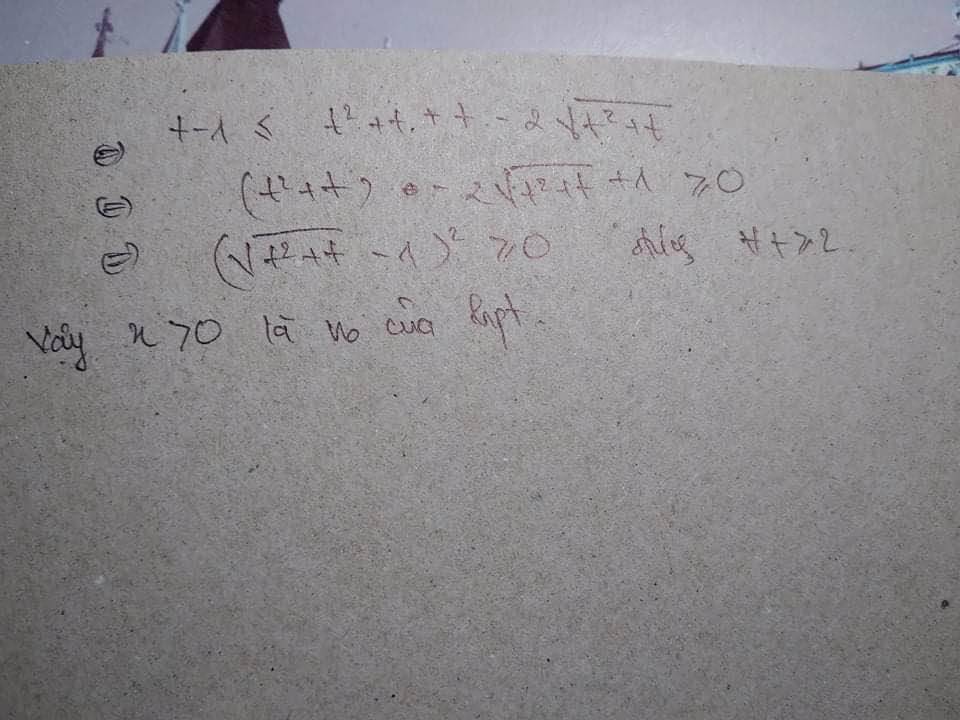 t-1 ≤ t² + t + t - 2√(t²+t)
⇔ (t²+t) - 2√(t²+t) + 1 ≥ 0
⇔ (√(t²+t) - 1)² ≥ 0 đúng ∀t ≥ 2.
Vậy x > 0 là no của bpt.